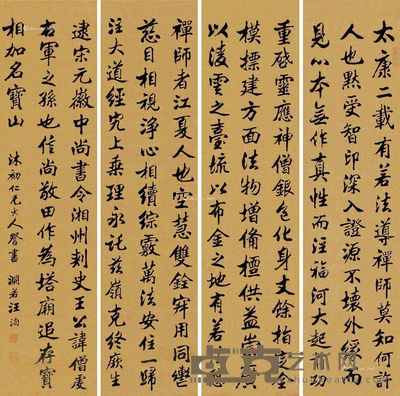 太康二載有若法導禪師莫知何許
人也默受智印深入證源不壞外緣而
見心本無作真性而注福河大起前功
重啟靈應神僧銀色化身丈餘指定全
模標建方面法物增備檀供益崇廣
以陵雲之臺疏以布金之地有若法愍
禪師者江夏人也空慧雙銓寂用同轡
慈目相視淨心相續綜覈萬法安住一歸
注大道經究上乘理永託茲嶺克終厥生
逮宋元徽中尚書令湘州刺史王公諱僧虔
右軍之孫也信尚敬田作為塔廟追存寶
相加名寶山
沐初仁兄大人詧書
淵若汪洵
卓克艺术网